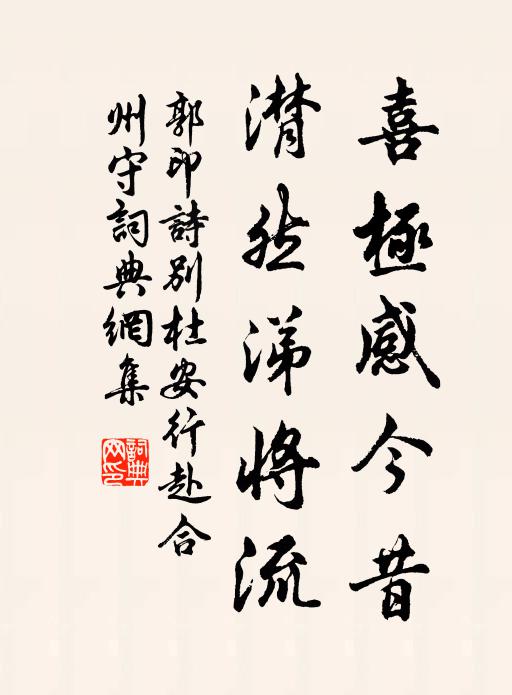 喜極感今昔
潸然涕將流
郭印詩別杜安行赴合
州守詞典網集
詞典
网印